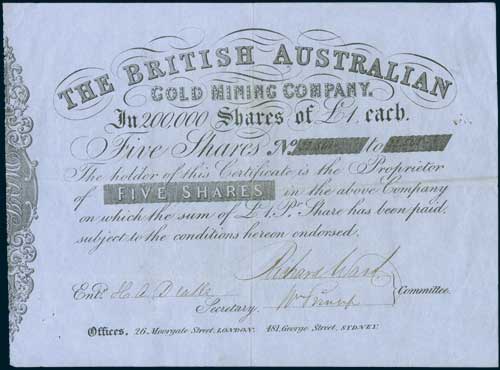 THE BRITISH AUSTRALIAN
GOLD MINING COMPANY.
In 200,000 Shares of £1. each.
Five Shares No. to
The holder of this Certificate is the Proprietor
of FIVE SHARES in the above Company
on which the sum of £1. Pr. Share has been paid,
subject to the conditions hereon endorsed.
Richard
Entd. H. A. Secretary. Wm Committee.
Offices, 26, Moorgate Street, LONDON. 481, George Street, SYDNEY.